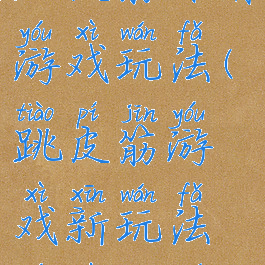 yóu xì wán fǎ
游戏玩法(
tiào pí jīn yóu
跳皮筋游
xì xīn wán fǎ
戏新玩法